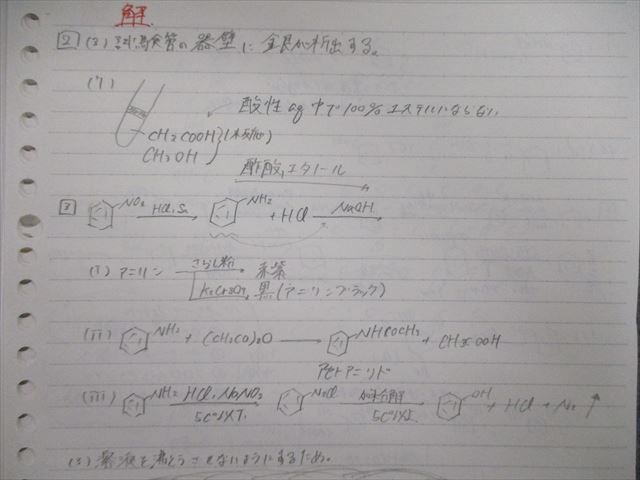 解
[2] (2) 試験管の器壁に金属が析出する。
(7)
酸性 aq 中で 100% エステルにならない
CH3COOH
CH3OH
(未反応)
酢酸,エタノール
[3] NO2 HCl, Sn NH2 + HCl NaOH
(i) アニリン さらし粉 赤紫
K2Cr2O7 黒(アニリンブラック)
(ii) NH2 + (CH3CO)2O → NHCOCH3 + CH3COOH
アセトアニリド
(iii) NH2 HCl, NaNO2 N2Cl 加水分解 OH + HCl + N2 ↑
5℃以下 5℃以上
(3) 溶液を沸とうさせないようにするため。